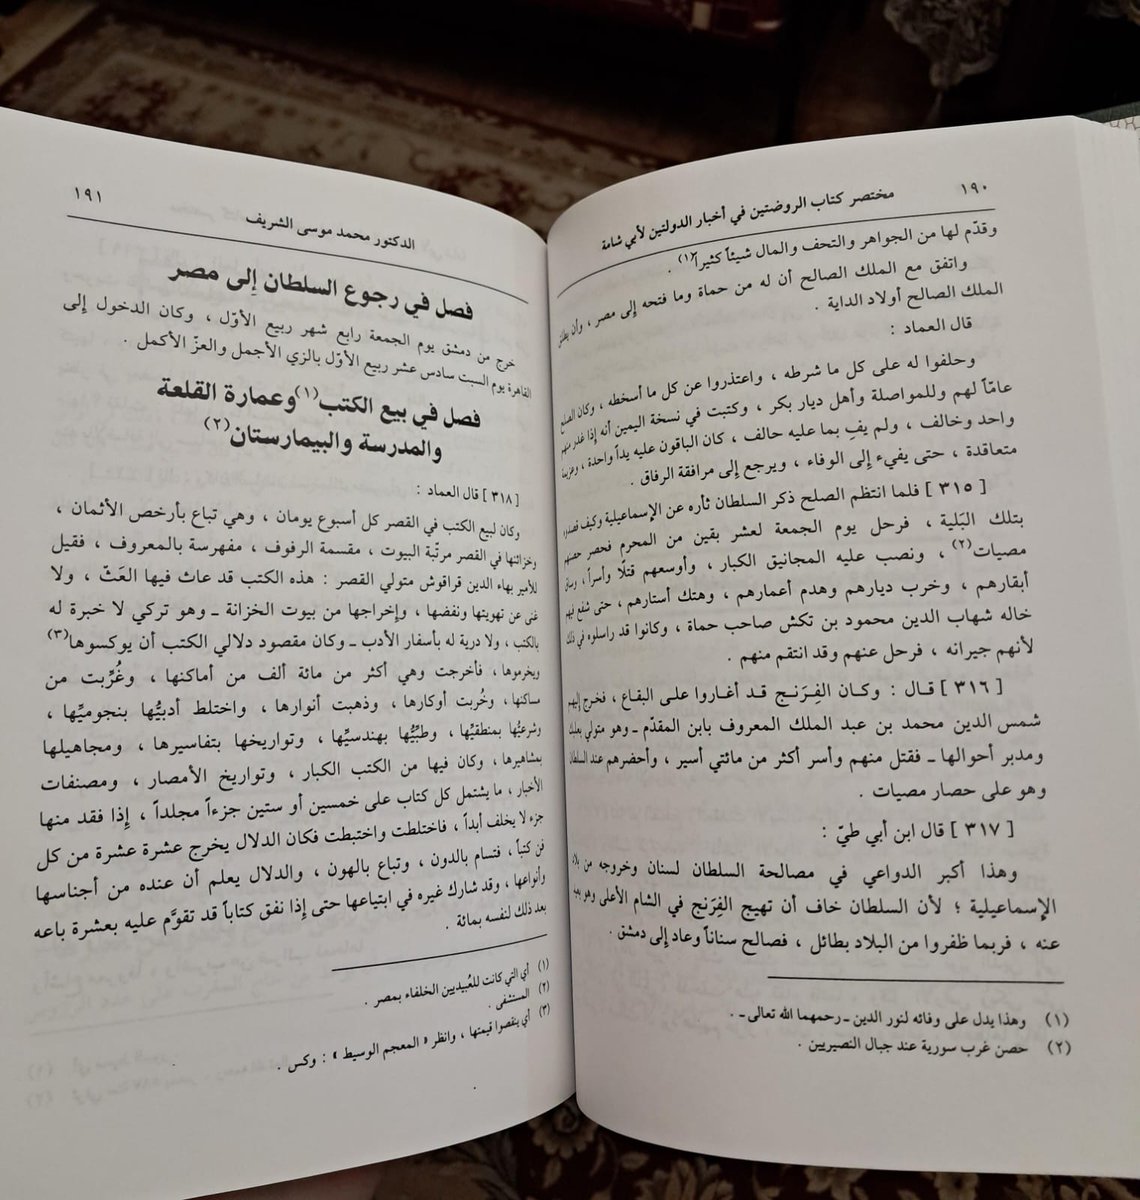 ١٩٠
مختصر كتاب الروضتين في أخبار الدولتين لأبي شامة
وقدّم لها من الجواهر والتحف والمال شيئاً كثيراً(١) .
واتفق مع الملك الصالح أن له من حماة وما فتحه إلى مصر ، وأن
الملك الصالح أولاد الداية .
قال العماد :
وحلفوا له على كل ما شرطه ، واعتذروا عن كل ما أسخطه ، وكان الصلح
عامّاً لهم وللمواصلة وأهل ديار بكر ، وكتبت في نسخة اليمين أنه إذا غدر منهم
واحد وخالف ، ولم يفِ بما عليه حالف ، كان الباقون عليه يداً واحدة ، وعزيمة
متعاقدة ، حتى يفيء إلى الوفاء ، ويرجع إلى مرافقة الرفاق .
[ ٣١٥ ] فلما انتظم الصلح ذكر السلطان ثأره عن الإسماعيلية وكيف قصدوه
بتلك البَلية ، فرحل يوم الجمعة لعشر بقين من المحرم فحصر حصنهم
مصيات(٢) ، ونصب عليه المجانيق الكبار ، وأوسعهم قتلًا وأسراً ، وساق
أبقارهم ، وخرب ديارهم وهدم أعمارهم ، وهتك أستارهم ، حتى شفع فيهم
خاله شهاب الدين محمود بن تكش صاحب حماة ، وكانوا قد راسلوه في ذلك
لأنهم جيرانه ، فرحل عنهم وقد انتقم منهم .
[ ٣١٦ ] قال : وكان الفِرَنج قد أغاروا على البقاع ، فخرج إليهم
شمس الدين محمد بن عبد الملك المعروف بابن المقدّم ـ وهو متولي بعلبك
ومدبر أحوالها ـ فقتل منهم وأسر أكثر من مائتي أسير ، وأحضرهم عند السلطان
وهو على حصار مصيات .
[ ٣١٧ ] قال ابن أبي طيّ :
وهذا أكبر الدواعي في مصالحة السلطان لسنان وخروجه من بلاد
الإسماعيلية ؛ لأن السلطان خاف أن تهيج الفِرَنج في الشام الأعلى وهو بعيد
عنه ، فربما ظفروا من البلاد بطائل ، فصالح سناناً وعاد إلى دمشق .
(١) وهذا يدل على وفائه لنور الدين ـ رحمهما الله تعالى ـ .
(٢) حصن غرب سورية عند جبال النصيريين .
الدكتور محمد موسى الشريف
١٩١
فصل في رجوع السلطان إلى مصر
خرج من دمشق يوم الجمعة رابع شهر ربيع الأوّل ، وكان الدخول إلى
القاهرة يوم السبت سادس عشر ربيع الأوّل بالزي الأجمل والعزّ الأكمل .
فصل في بيع الكتب(١) وعمارة القلعة
والمدرسة والبيمارستان(٢)
[ ٣١٨ ] قال العماد :
وكان لبيع الكتب في القصر كل أسبوع يومان ، وهي تباع بأرخص الأثمان ،
وخزائنها في القصر مرتّبة البيوت ، مقسمة الرفوف ، مفهرسة بالمعروف ، فقيل
للأمير بهاء الدين قراقوش متولي القصر : هذه الكتب قد عاث فيها العَثّ ، ولا
غنى عن تهويتها ونفضها ، وإخراجها من بيوت الخزانة ـ وهو تركي لا خبرة له
بالكتب ، ولا درية له بأسفار الأدب ـ وكان مقصود دلالي الكتب أن يوكسوها(٣)
ويخرموها ، فأخرجت وهي أكثر من مائة ألف من أماكنها ، وغُرِّبت من
مساكنها ، وخُربت أوكارها ، وذهبت أنوارها ، واختلط أدبيُّها بنجوميِّها ،
وشرعيُّها بمنطقيِّها ، وطبِّيُّها بهندسيِّها ، وتواريخها بتفاسيرها ، ومجاهيلها
بمشاهيرها ، وكان فيها من الكتب الكبار ، وتواريخ الأمصار ، ومصنفات
الأخبار ، ما يشتمل كل كتاب على خمسين أو ستين جزءاً مجلداً ، إذا فقد منها
جزء لا يخلف أبداً ، فاختلطت واختبطت فكان الدلال يخرج عشرة عشرة من كل
فن كتباً ، فتسام بالدون ، وتباع بالهون ، والدلال يعلم أن عنده من أجناسها
وأنواعها ، وقد شارك غيره في ابتياعها حتى إذا نفق كتاباً قد تقوَّم عليه بعشرة باعه
بعد ذلك لنفسه بمائة .
(١) أي التي كانت للعُبيديين الخلفاء بمصر .
(٢) المستشفى .
(٣) أي ينقصوا قيمتها ، وانظر « المعجم الوسيط » : وكس .